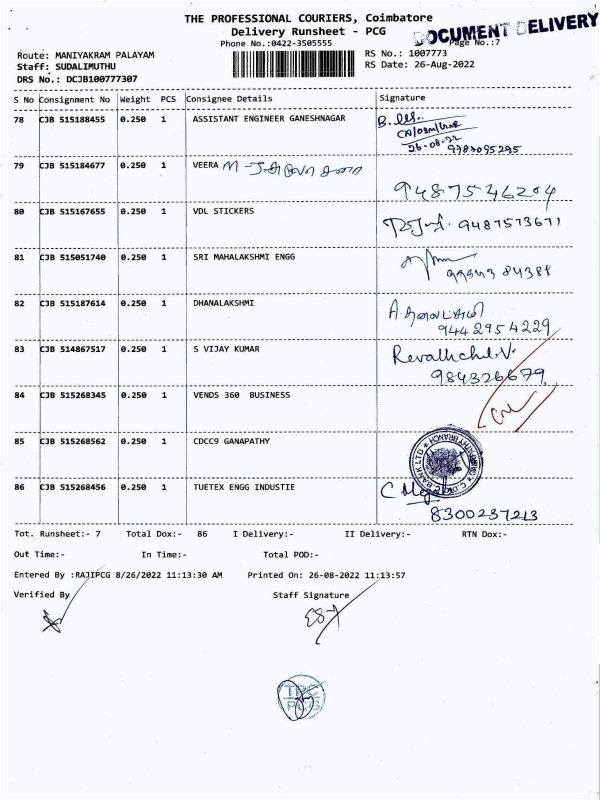 THE PROFESSIONAL COURIERS, Coimbatore
Delivery Runsheet - PCG
DOCUMENT DELIVERY
Phone No.:0422-3505555
Page No.:7
Route: MANIYAKRAM PALAYAM
RS No.: 1007773
Staff: SUDALIMUTHU
RS Date: 26-Aug-2022
DRS No.: DCJB100777307
S No Consignment No Weight PCS Consignee Details Signature
78 CJB 515188455 0.250 1 ASSISTANT ENGINEER GANESHNAGAR
26-08-22
9783095295
79 CJB 515184677 0.250 1 VEERA
9487546204
80 CJB 515167655 0.250 1 VDL STICKERS 9487573671
81 CJB 515051740 0.250 1 SRI MAHALAKSHMI ENGG
84388
82 CJB 515187614 0.250 1 DHANALAKSHMI A. தனலட்சுமி
9442954229
83 CJB 514867517 0.250 1 S VIJAY KUMAR Revathchel.V.
984326679
84 CJB 515268345 0.250 1 VENDS 360 BUSINESS
85 CJB 515268562 0.250 1 CDCC9 GANAPATHY
86 CJB 515268456 0.250 1 TUETEX ENGG INDUSTIE
8300237213
Tot. Runsheet:- 7 Total Dox:- 86 I Delivery:- II Delivery:- RTN Dox:-
Out Time:- In Time:- Total POD:-
Entered By :RAJIPCG 8/26/2022 11:13:30 AM Printed On: 26-08-2022 11:13:57
Verified By Staff Signature
TPC
PCG